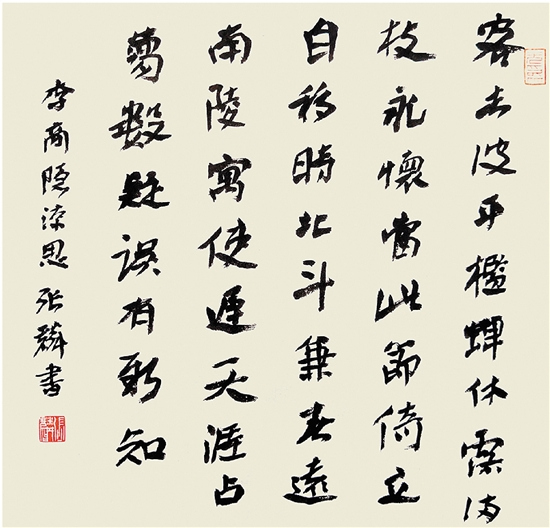 客去波平檻蟬休露滿
枝永懷當此節倚立
自移時北斗兼春遠
南陵寓使遲天涯占
夢數疑誤有新知
李商隱涼思 張書